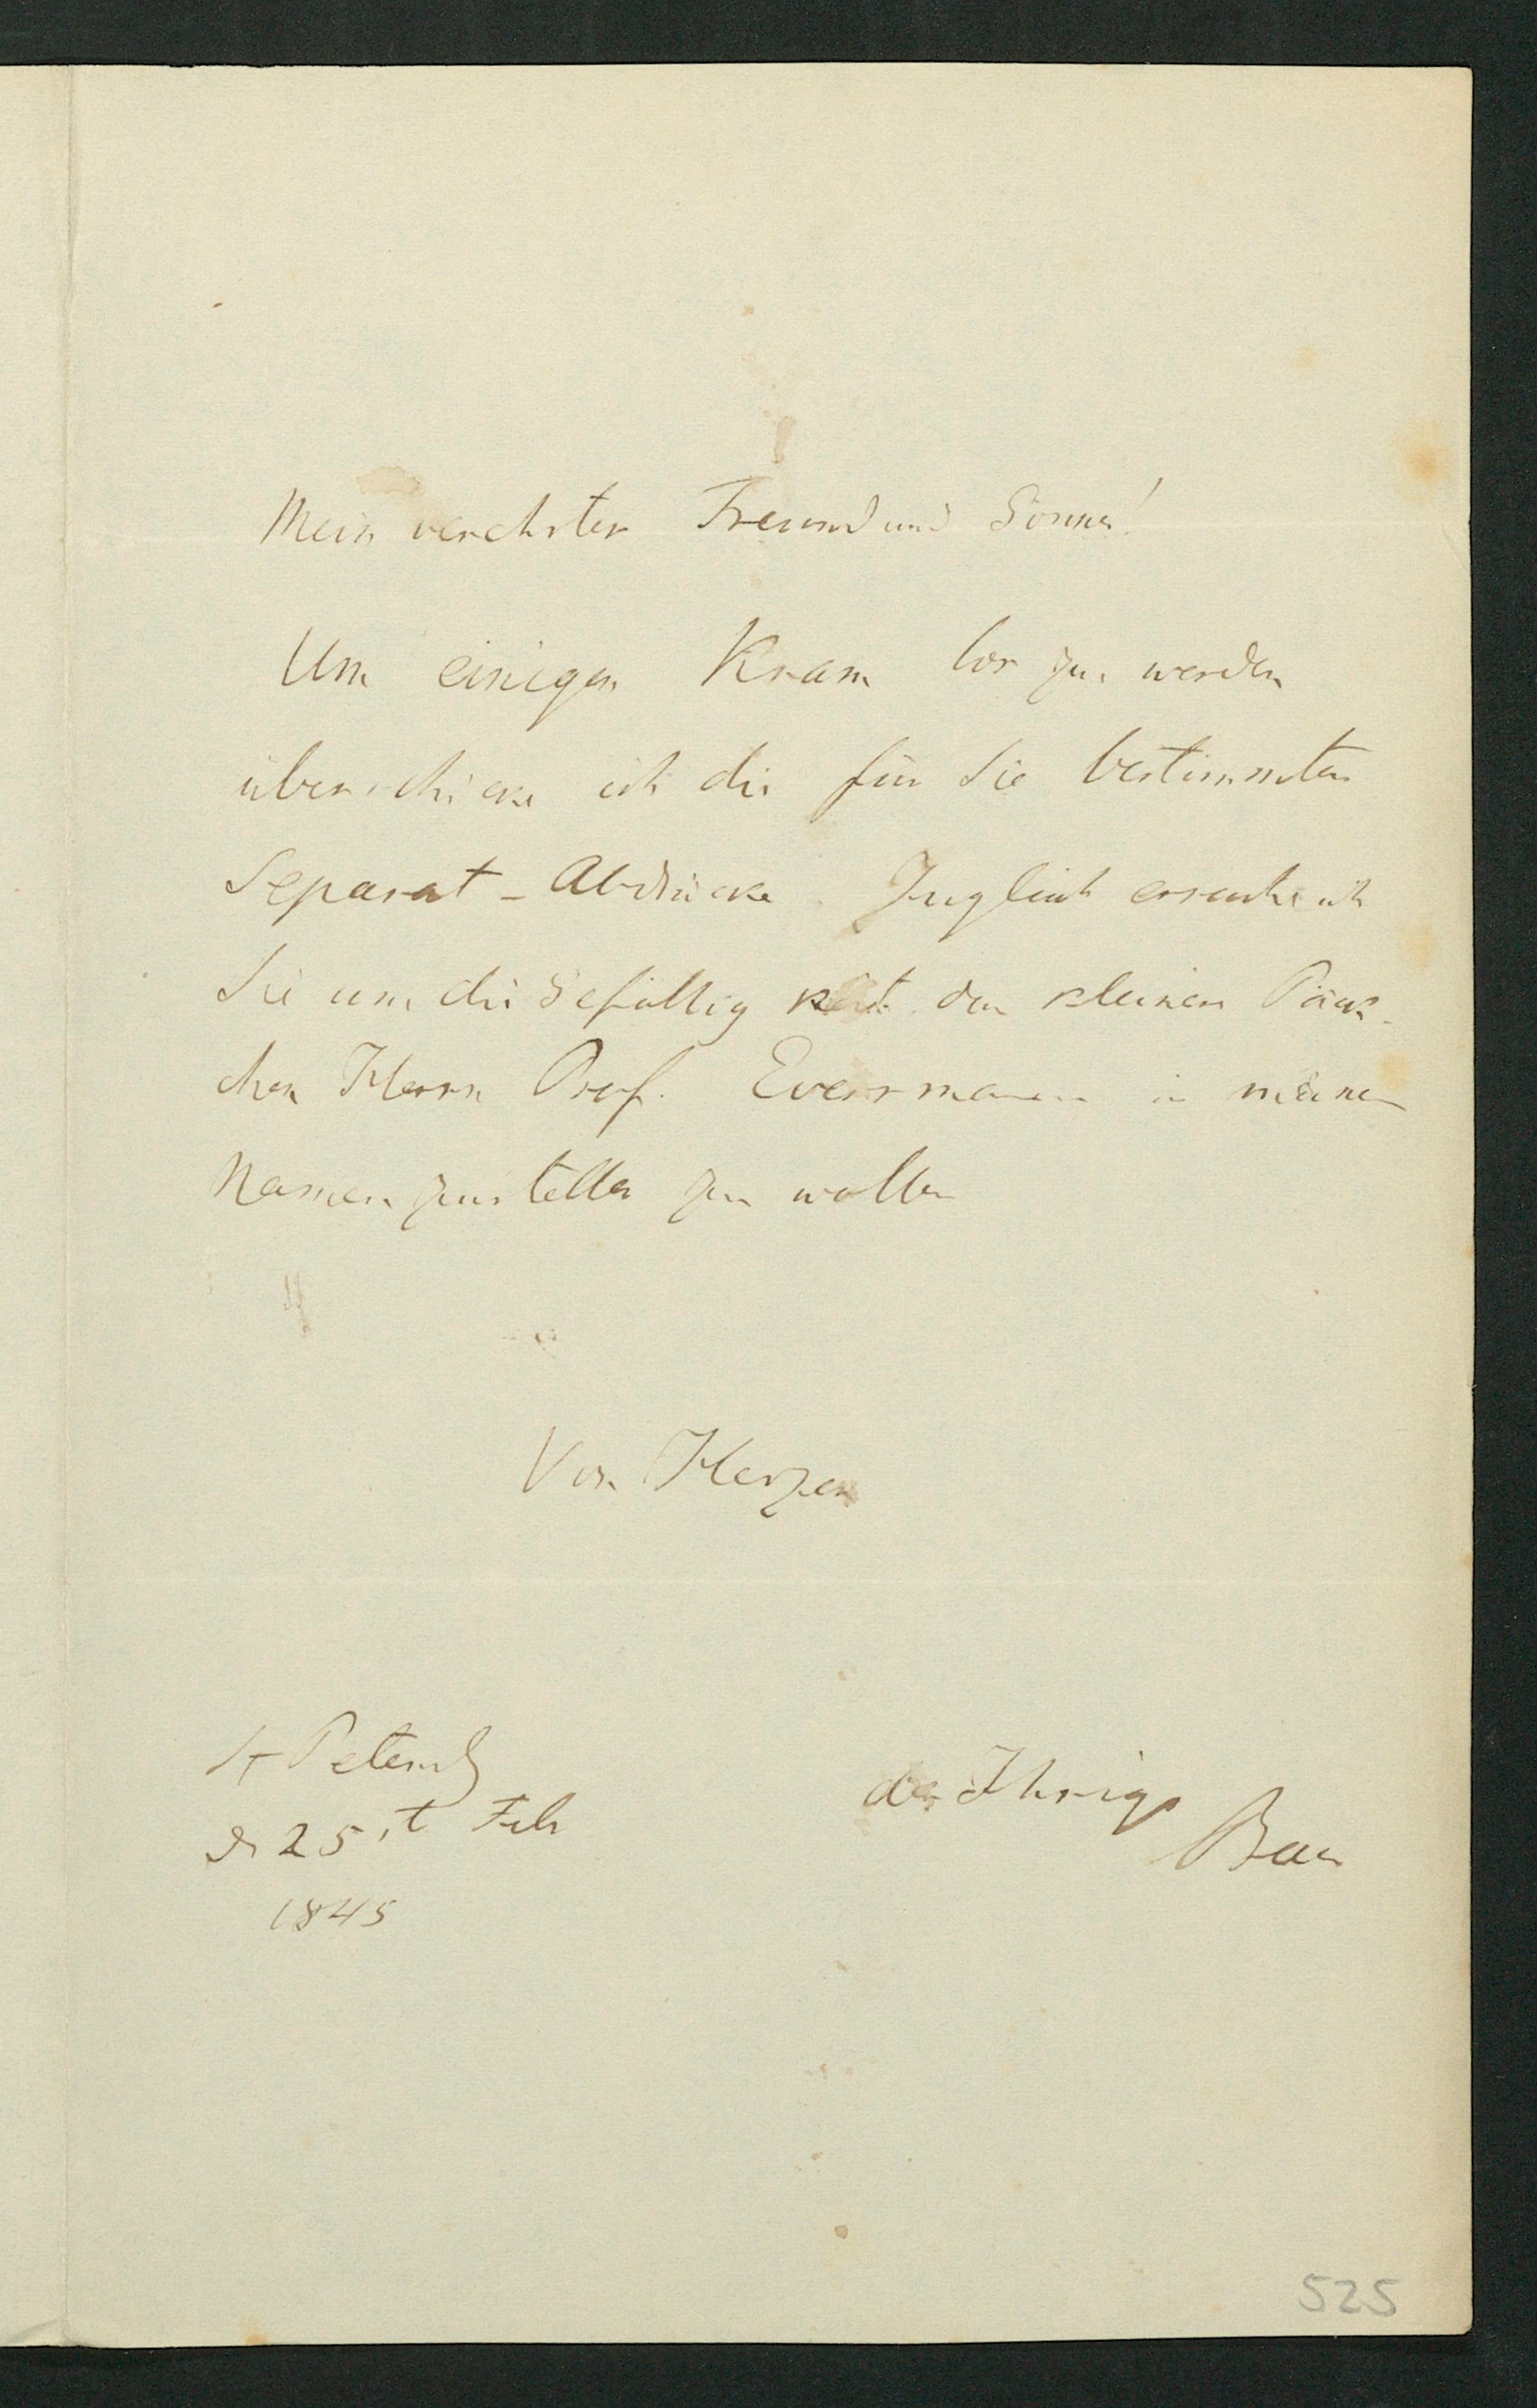 Mein verehrter Freund und Gönner!
Um einigen Kram los zu werden
überschicke ich die für Sie bestimmten
Separat-Abdrücke. Zugleich ersuche ich
Sie um die Gefälligkeit den kleinen Päck-
chen Herrn Prof. Eversmann in meinem
Namen zustellen zu wollen
Von Herzen
der Ihrige
Baer
St Petersb
d 25st Feb
1845
525